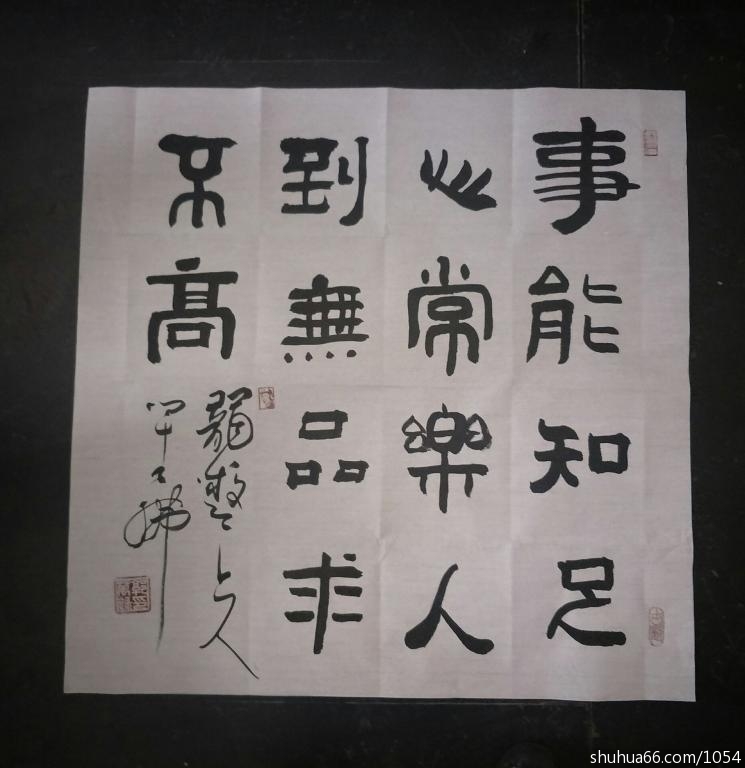 事能知足
心常樂人
到無品求
不高
上人
shuhua66.com/1054